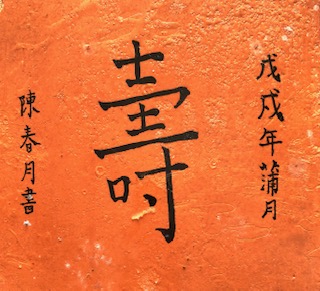 戊戌年蒲月
壽
陳春月書